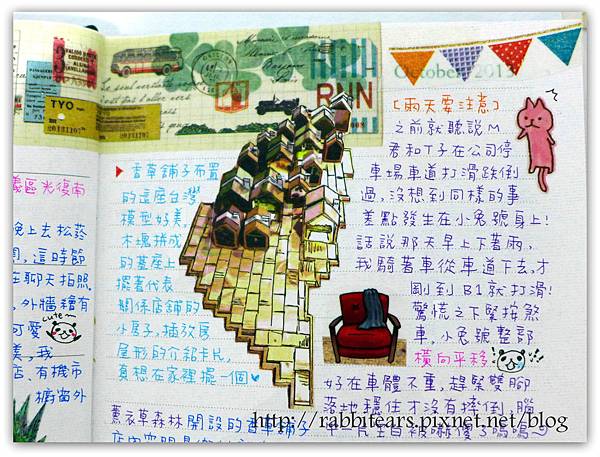 October, 2013
TYO
20131107
RUN
義區光復南
晚上去松菸
在聊天拍照
外牆種有
可愛
cute~
美,我
店、有機市
櫥窗外
▶香草鋪子布置
的這座台灣
模型好美,
木塊拼成
的基座上
擺著代表
關係店鋪的
小屋子,插放房
屋形的介紹卡片,
真想在家裡擺一個♥
薰衣草森林開設的香草鋪子
[雨天要注意]
之前就聽說M
君和T子在公司停
車場車道打滑跌倒
過,沒想到同樣的事
差點發生在小兔號身上!
話說那天早上下著雨,
我騎著車從車道下去,才
剛到B1就打滑!
驚慌之下緊按煞
車,小兔號整部
橫向平移
好在車體不重,趕緊雙腳
落地穩住才沒有摔倒,腦
http://rabbitears.pixnet.net/blog